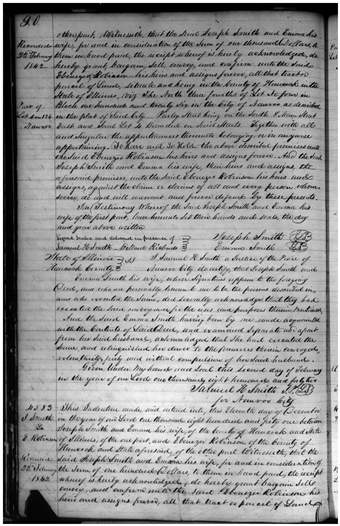 90
otherpart, Witnesseth, that the said Joseph Smith and Emma his
wife, for and in consideration of the Sum of one thousand Dollars, to
them in hand paid, the receipt whereof is hereby acknowledged, do
hereby grant bargain, sell, convey, and confirm unto the said
Ebenezer Robinson his heirs and assigns forever, all that tract or
parcel of Land, situate and being in the County of Hancock in the
State of Illinois,
Block one hundred and twenty Six in the City of Nauvoo as described
in the plat of said City.
Together with all
and Singular the appurtenances thereunto belonging or in any wise
appertaining. To Have and To Hold the above described premises unto
the said Ebenezer Robinson his heirs and assigns forever. And the said
Joseph Smith and Emma his wife, their heirs and assigns the
aforesaid premises, unto the said Ebenezer Robinson his heirs and
assigns, against the claim or claims of all and every person whomso
ever, do and will warrant and forever defend by these presents.
In Testimony Whereof the said Joseph Smith and Emma his
wife of the first part, have hereunto set their hands and seals, the day
and year above written
Signed Sealed and delivered in presence of
Joseph Smith
Samuel H Smith Willard Richards
Emma Smith
State of Illinois
Hancock County
I Samuel H Smith a Justice of the Peace of
Nauvoo City do certify, that Joseph Smith and
Emma Smith his wife, whose Signatures appear to the foregoing
Deed, and who are personally known to me to be the persons described in,
and who executed the Same, did severally acknowledge that they had
executed the Said conveyance for the uses and purposes therein mentioned
And the said Emma Smith having been by me made acquainted
with the Contents of Said Deed, and examined Separate and apart
from her said husband, acknowledged that She had executed the
same, and relinquished her dower to the premises therein conveyed,
voluntarily, freely and without compulsion of her Said husband.
Given Under My hand and Seal this second day of February
in the year of our Lord one thousand eight hundred and forty two
Samuel H Smith J.P.
for Nauvoo City
4583
This Indenture, made and entered into, this Eleventh day of December
in the year of our Lord one thousand eight hundred and forty one between
Joseph Smith and Emma his wife, of the County of Hancock and State
of Illinois, of the one part, and Ebenezer Robinson of the County of
Hancock and State aforesaid, of the other part Witnesseth, that the
said Joseph Smith and Emma his wife, for and in consideration of
the Sum of one hundred Dollars, to them in hand paid, the receipt
whereof is hereby acknowledged, do hereby grant bargain sell
convey, and confirm unto the said Ebenezer Robinson his
heirs and assigns forever, all that tract or parcel of Land